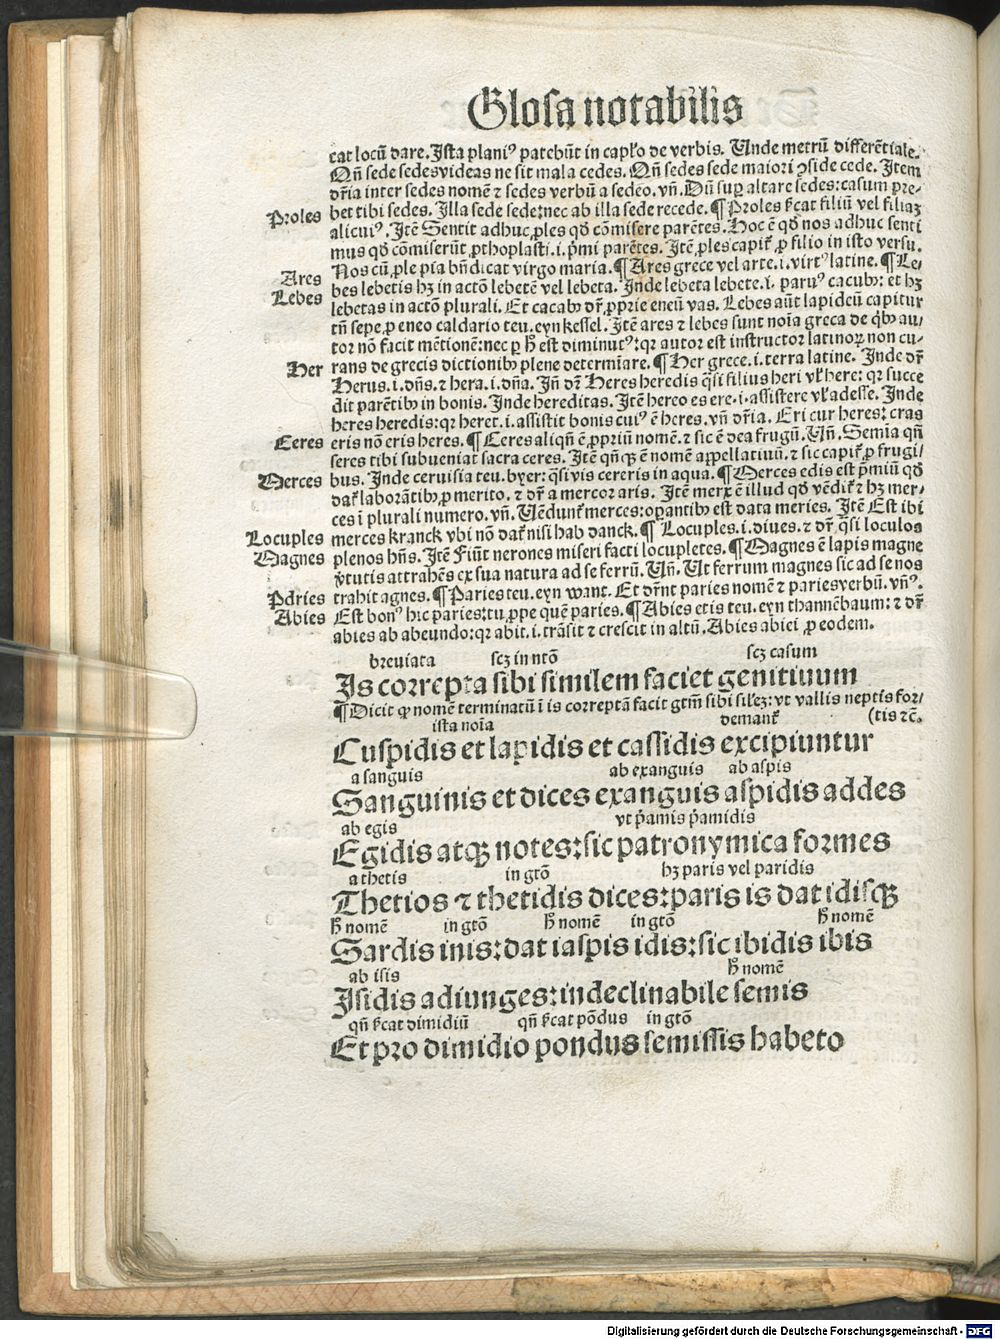 Glosa notabilis
cat locū dare. Ista planiꝰ patebūt in capło de verbis. Unde metrū differētiale.
Qñ sede sedes videas ne sit mala cedes. Qñ sedes sede maiori ꝯside cede. Item
dr̄ia inter sedes nomē ⁊ sedes verbū a sedeo. vñ. Dū suꝑ altare sedes: casum pre-
Proles
bet tibi sedes. Illa sede sede: nec ab illa sede recede. ¶ Proles ẜcat filiū vel filiaꝫ
alicuiꝰ. Itē Sentit adhuc ꝓles qđ cōmisere parētes. Hoc ē qđ nos adhuc senti
mus qđ cōmiserūt ꝓthoplasti .i. p̄mi parētes. Itē ꝓles capit̄ ꝓ filio in isto versu.
Nos cū ꝓle pia bn̄dicat virgo maria. ¶ Ares grece vel arte .i. virtꝰ latine. ¶ Le/
Ares
bes lebetis hꝫ in actō lebetē vel lebeta. Inde lebeta lebete .i. paruꝰ cacubꝰ: et hꝫ
Lebes
lebetas in actō plurali. Et cacabꝰ dr̄ ꝓprie eneū vas. Lebes aūt lapideū capitur
tñ sepe ꝓ eneo caldario teu. eyn kessel. Itē ares ⁊ lebes sunt noīa greca de qͥbꝰ au/
tor nō facit mētionē: nec ꝑ ħ est diminutꝰ: qꝛ autor est instructor latinoꝝ non cu-
Her
rans de grecis dictionibꝰ plene determīare. ¶ Her grece .i. terra latine. Inde dr̄
Herus .i. dñs. ⁊ hera .i. dña. Iñ dr̄ Heres heredis q̄si filius heri vł here: qꝛ succe
dit parētibꝰ in bonis. Inde hereditas. Itē hereo es ere .i. assistere vł adesse. Inde
heres heredis: qꝛ heret .i. assistit bonis cuiꝰ ē heres. vñ dr̄ia. Eri cur heres: cras
Ceres
eris nō eris heres. ¶ Ceres aliqñ ē ꝓpriū nomē. ⁊ sic ē dea frugū. Uñ. Semīa qñ
seres tibi subueniat sacra ceres. Itē qñqꝫ ē nomē appellatiuū. ⁊ sic capit̄ ꝓ frugi/
Merces
bus. Inde ceruisia teu. byer: q̄si vis cereris in aqua. ¶ Merces edis est p̄miū qđ
dat̄ laborātibꝰ ꝓ merito. ⁊ dr̄ a mercor aris. Itē merx ē illud qđ vēdit̄ ⁊ hꝫ mer/
ces ī plurali numero. vñ. Uēdunt̄ merces: oꝑantibꝰ est data merces. Itē Est ibi
Locuples
merces kranck vbi nō dat̄ nisi hab danck. ¶ Locuples .i. diues. ⁊ dr̄ q̄si loculos
Magnes
plenos hñs. Itē Fiūt nerones miseri facti locupletes. ¶ Magnes ē lapis magne
v̄tutis attrahēs ex sua natura ad se ferrū. Uñ. Ut ferrum magnes sic ad se nos
Paries
trahit agnes. ¶ Paries teu. eyn want. Et dr̄nt paries nomē ⁊ paries verbū. vñꝰ.
Abies
Est bonꝰ hic paries: tu ꝓpe quē paries. ¶ Abies etis teu. eyn thannēbaum: ⁊ dr̄
abies ab abeundo: qꝛ abit .i. trāsit ⁊ crescit in altū. Abies abiei ꝓ eodem.
breuiata scꝫ in ntō scꝫ casum
Is correpta sibi similem faciet genitiuum
¶ Dicit ꝙ nomē terminatū ī is correptā facit gtm̄ sibi sił̄eꝫ: vt vallis neptis for/
ista noīa demant̄ (tis ⁊c.
Cuspidis et lapidis et cassidis excipiuntur
a sanguis ab exanguis ab aspis
Sanguinis et dices exanguis aspidis addes
ab egis vt p̄amis p̄amidis
Egidis atqꝫ notes: sic patronymica formes
a thetis in gtō hꝫ paris vel paridis
Thetios ⁊ thetidis dices: paris is dat idisqꝫ
ħ nomē in gtō ħ nomē in gtō ħ nomē
Sardis inis: dat iaspis idis: sic ibidis ibis
ab isis ħ nomē
Isidis adiunges: indeclinabile semis
qñ ẜcat dimidiū qñ ẜcat pōdus in gtō
Et pro dimidio pondus semissis habeto
Digitalisierung gefördert durch die Deutsche Forschungsgemeinschaft - DFG